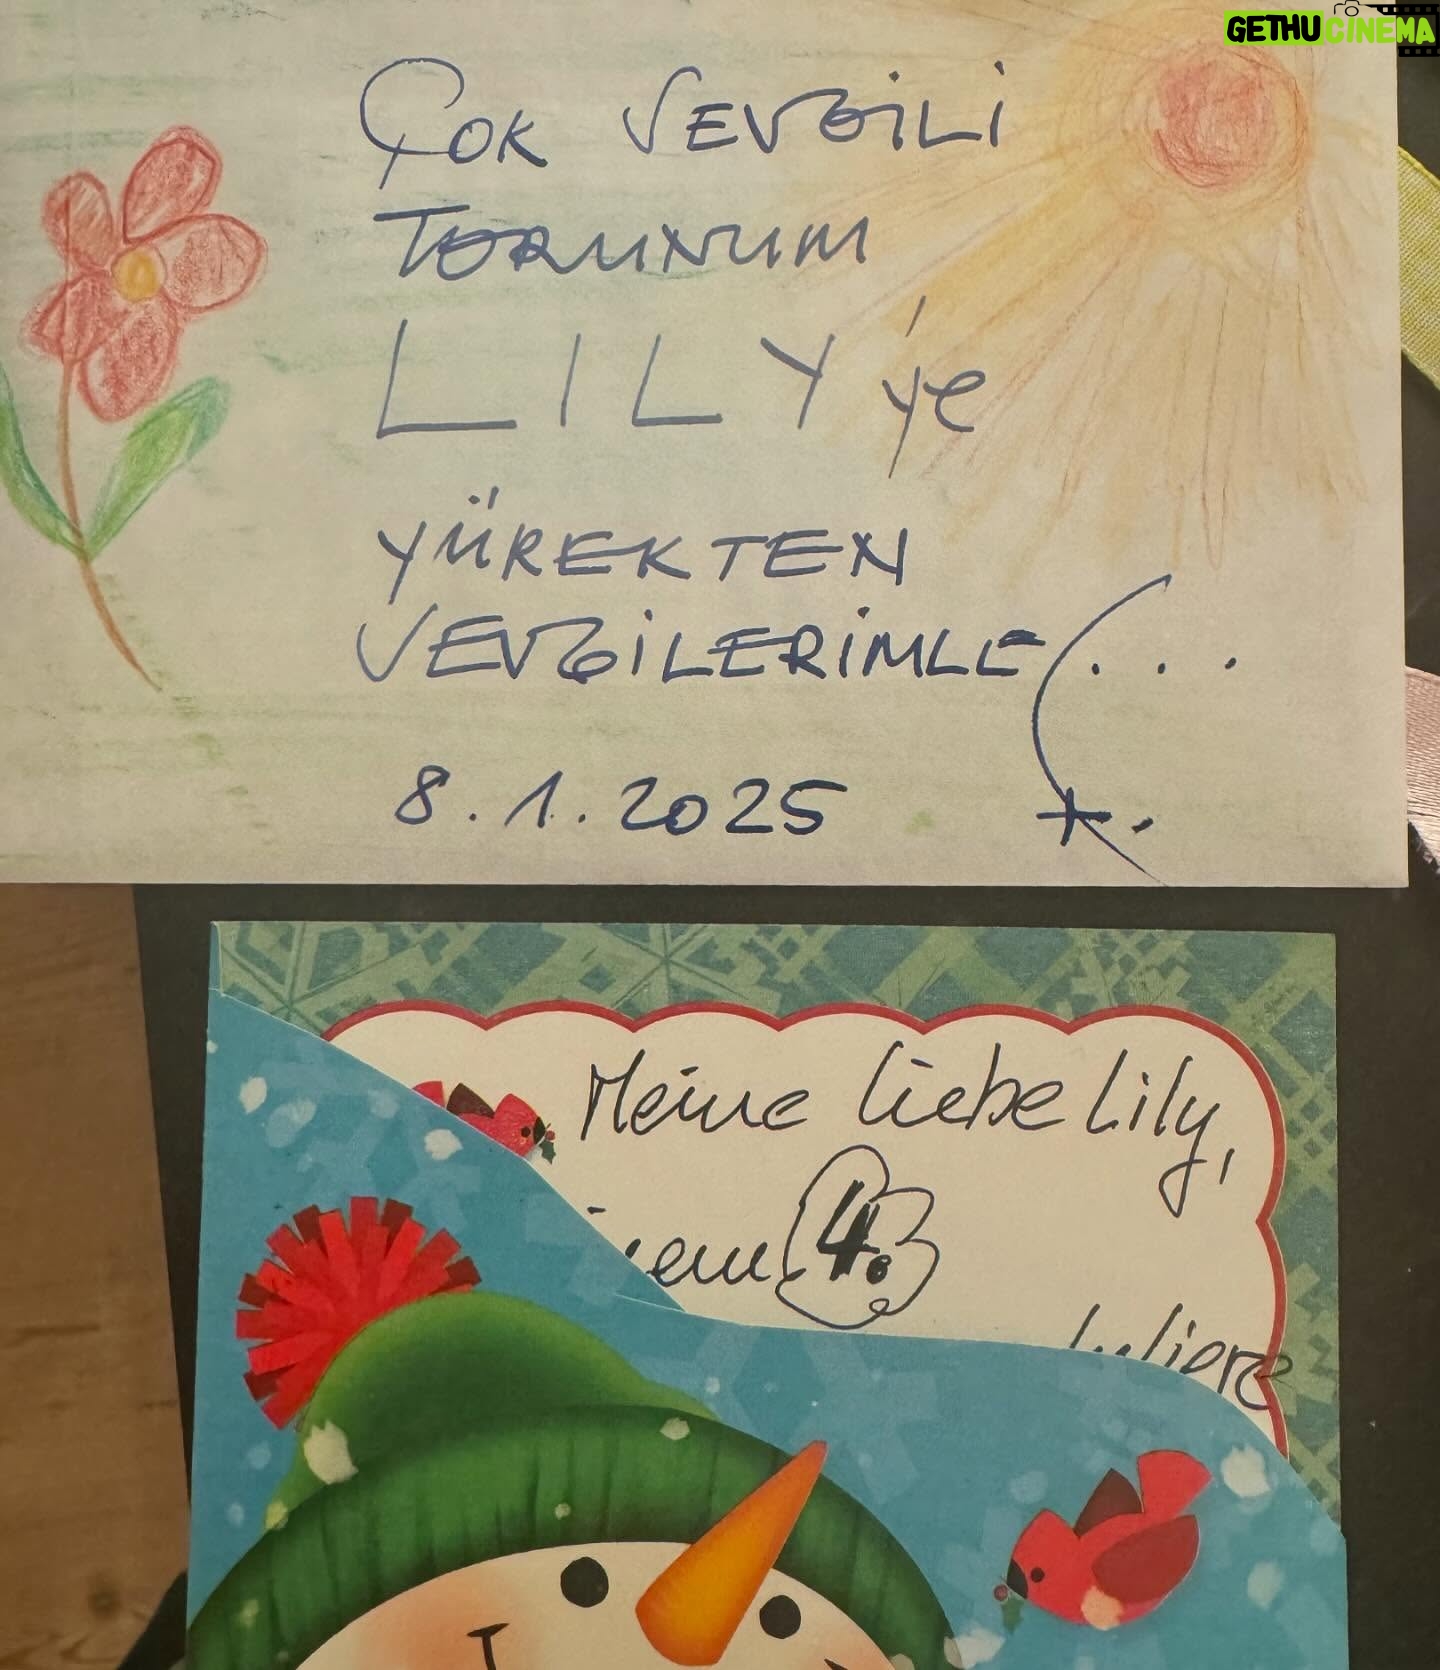 GETHUCINEMA
ÇOK SEVGİLİ
TORUNUM
LILY'ye
YÜREKTEN
SEVGİLERİMLE...
8.1.2025
Meine liebe Lily,
4.